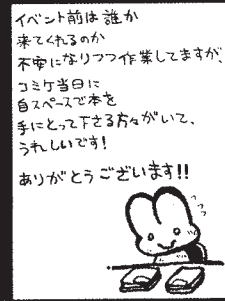 イベント前は誰か
来てくれるのか
不安になりつつ作業してますが、
コミケ当日に
自スペースで本を
手にとって下さる方々がいて、
うれしいです!
ありがとうございます!!